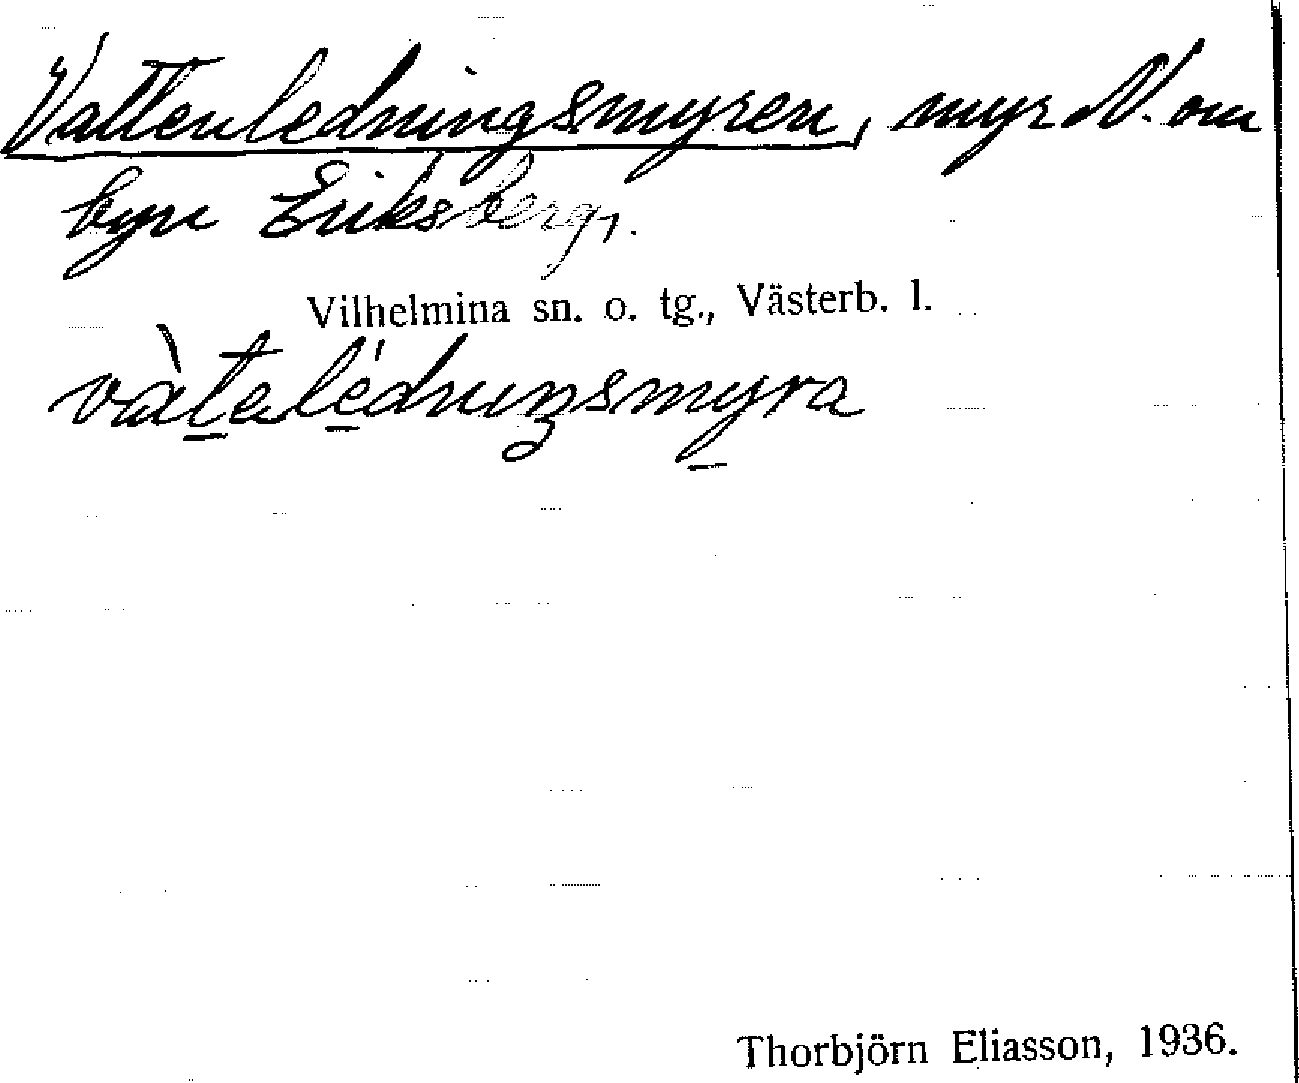 Vattenledningsmyren, myr N. om
byn Eriksberg.
Vilhelmina sn. o. tg., Västerb. l.
vàtelédnıŋsmyra
Thorbjörn Eliasson, 1936.